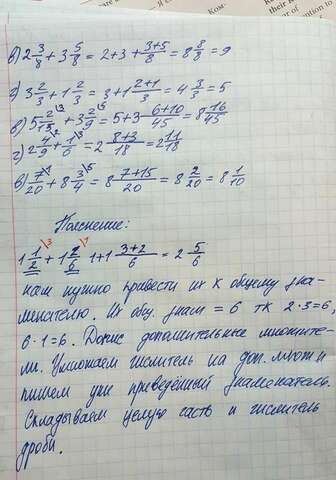 б) 2 3/8 + 3 5/8 = 2+3 + (3+5)/8 = 8 8/8 = 9
г) 3 2/3 + 1 2/3 = 3+1 (2+1)/3 = 4 3/3 = 5
в) 5 2/15 \3 + 3 2/9 \5 = 5+3 (6+10)/45 = 8 16/45
г) 2 4/9 \2 + 1/6 \3 = 2 (8+3)/18 = 2 11/18
в) 7/20 \1 + 8 3/4 \5 = 8 (7+15)/20 = 8 2/20 = 8 1/10
Пояснение:
1 1/2 \3 + 1 2/6 \1 1+1 (3+2)/6 = 2 5/6
нам нужно привести их к общему зна-
менателю. Их общ. знам = 6 тк 2·3=6,
6·1=6. Допис дополнительные множите-
ли. Умножаем числитель на доп. множ и
пишем уже приведённый знаменатель.
Складываем целую часть и числитель
дроби.